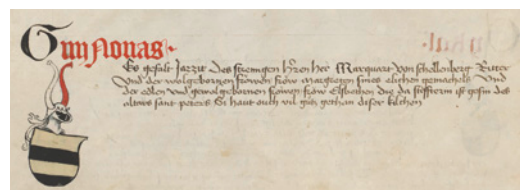 Guij Nonas.
Es gefalt Jarzit des strengen h'ren her Marquart von schellenberg Ritter
Und der wolgebornen frowen frow Margreten sines elichen gemachels Und
der edlen und gewolgebornen frowen frow Elsbethen die da stiffterin ist gesin des
altars sant peters Si haut auch vil guts gethan diser kilchen